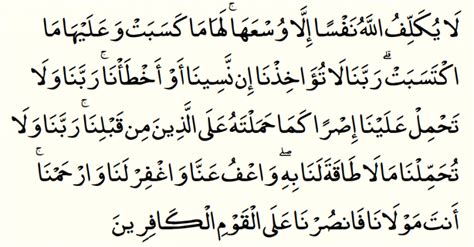 لَا يُكَلِّفُ اللَّهُ نَفْسًا إِلَّا وُسْعَهَا ۚ لَهَا مَا كَسَبَتْ وَعَلَيْهَا مَا
اكْتَسَبَتْ ۗ رَبَّنَا لَا تُؤَاخِذْنَا إِن نَّسِينَا أَوْ أَخْطَأْنَا ۚ رَبَّنَا وَلَا
تَحْمِلْ عَلَيْنَا إِصْرًا كَمَا حَمَلْتَهُ عَلَى الَّذِينَ مِن قَبْلِنَا ۚ رَبَّنَا وَلَا
تُحَمِّلْنَا مَا لَا طَاقَةَ لَنَا بِهِ ۖ وَاعْفُ عَنَّا وَاغْفِرْ لَنَا وَارْحَمْنَا ۚ
أَنتَ مَوْلَانَا فَانصُرْنَا عَلَى الْقَوْمِ الْكَافِرِينَ